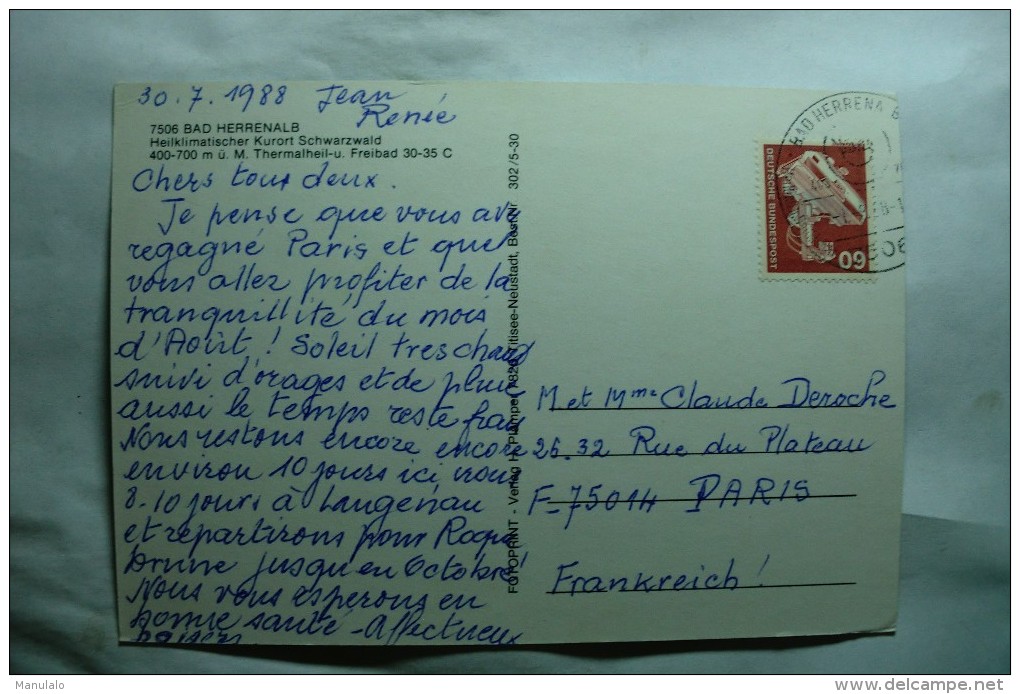 30.7.1988 Jean
Renée
7506 BAD HERRENALB
Heilklimatischer Kurort Schwarzwald
400-700 m ü. M. Thermalheil-u. Freibad 30-35 C
Chers tous deux.
Je pense que vous av
regagné Paris et que
vous allez profiter de la
tranquillité du mois
d'Août! Soleil tres chaud
suivi d'orages et de pluie
aussi le temps reste frai
Nous restons encore encore
environ 10 jours ici, irons
8-10 jours à Langenau
et repartirons pour Roque
brune jusqu'en Octobre!
Nous vous esperons en
bonne santé - Affectueux
baisers
FOTOPRINT - Verlag H. Plamper, 7820 Titisee-Neustadt, Best Nr 302/5-30
BAD HERRENA
DEUTSCHE BUNDESPOST
60
M et Mme Claude Deroche
26.32 Rue du Plateau
F-75014 PARIS
Frankreich!
Manulalo
www.delcampe.net